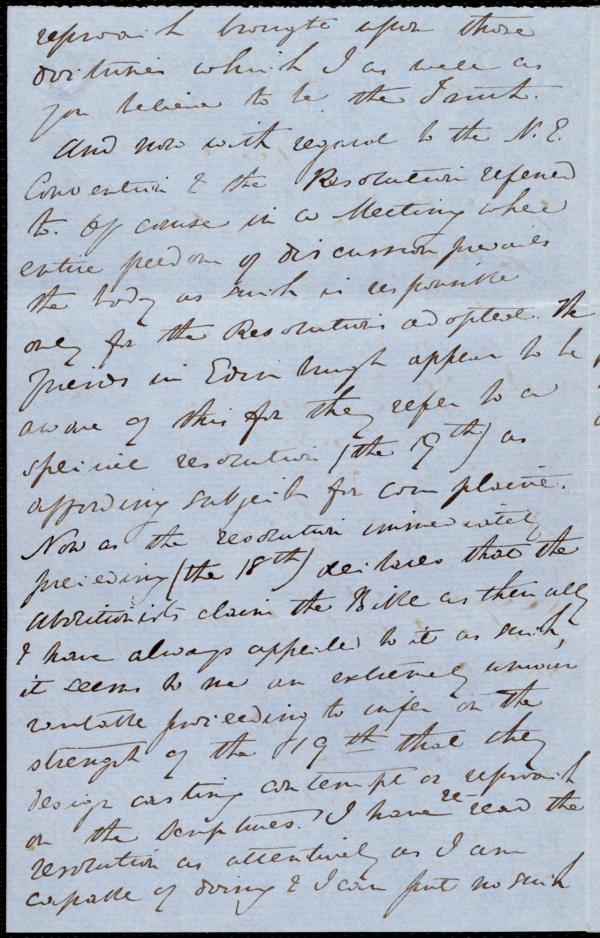 reproach brought upon those
doctrines which I as well as
you believe to be the Truth.
And now with regard to the N. E.
Convention & the Resolution referred
to. Of course in a Meeting where
entire freedom of discussion prevails
the body as such is responsible
only for the Resolutions adopted. The
friends in Edinburgh appear to be
aware of this for they refer to a
specific resolution (the 19th) as
affording subject for complaint.
Now as the resolution immediately
preceding (the 18th) declares that the
abolitionists claim the Bible as their ally
& have always appealed to it as such,
it seems to me an extremely uncour
rantable proceeding to infer on the
strength of the 19th that they
design casting contempt or reproach
on the Scriptures. I have re-read the
resolution as attentively as I am
capable of doing & I can put no such